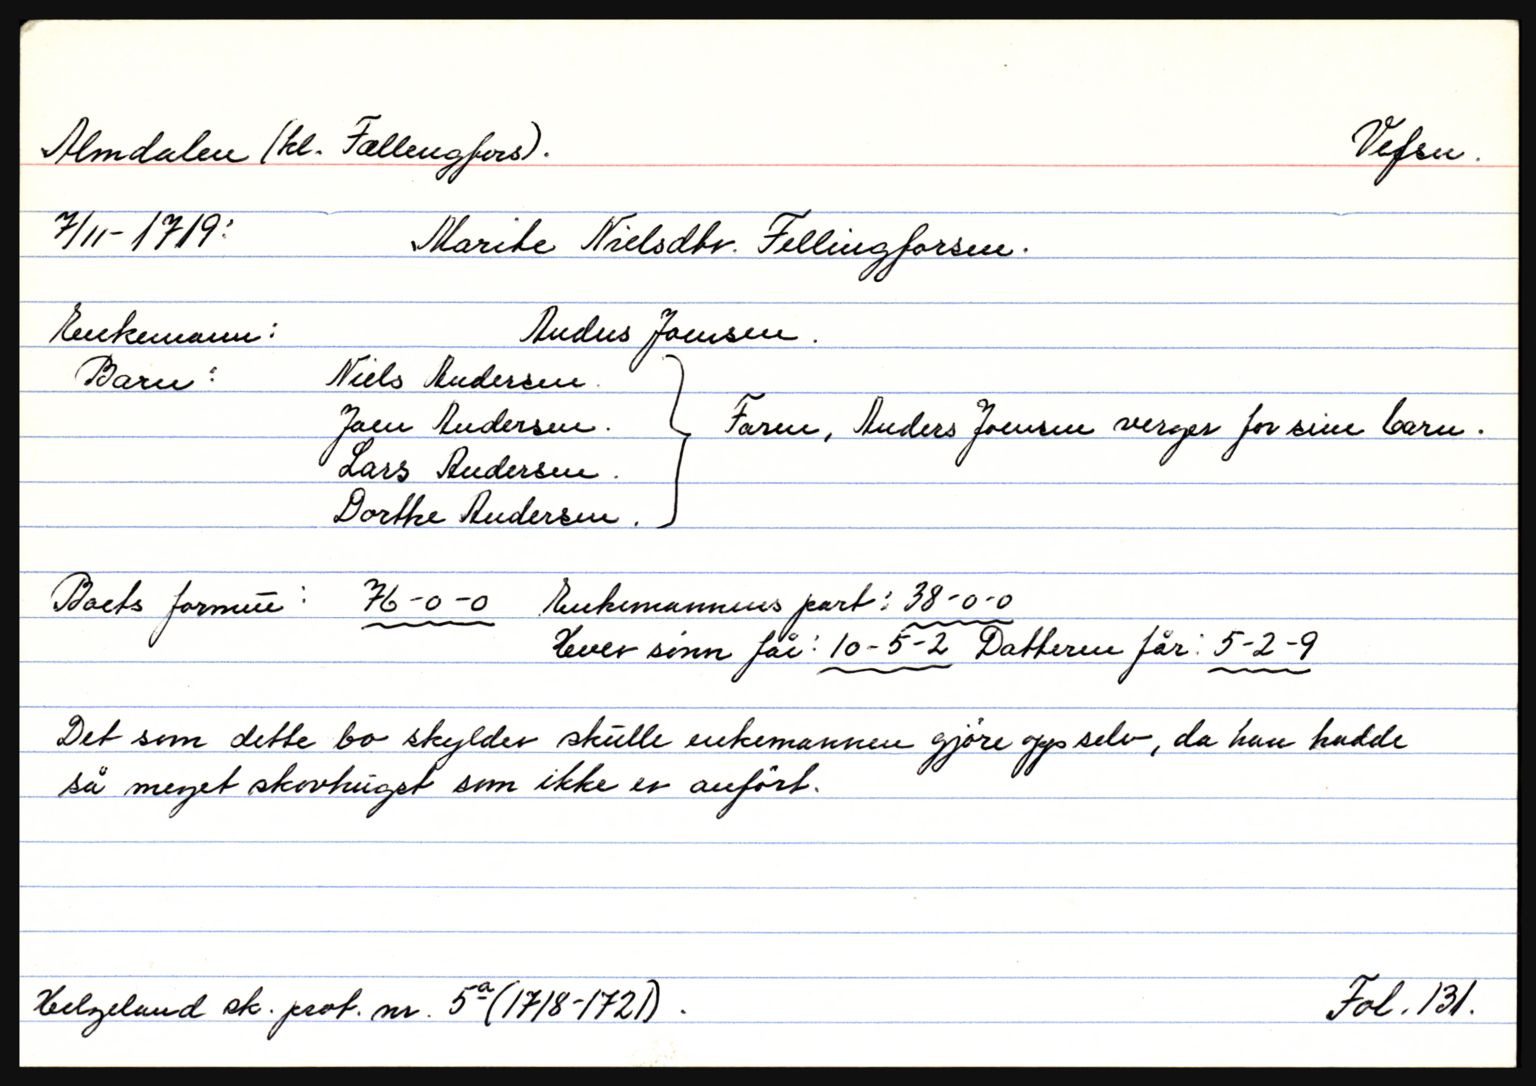 Almdalen (kl. Fællengfors). Vefsn.
7/11-1719: Marite Nielsdtr. Fellingforsen.
Enkemann: Anders Joensen.
Barn: Niels Andersen.
Joen Andersen.
Lars Andersen.
Dorthe Andersen.
Faren, Anders Joensen verger for sine barn.
Boets formue: 76-0-0 Enkemannens part: 38-0-0
Hver sønn får: 10-5-2 Datteren får: 5-2-9
Det som dette bo skylder skulle enkemannen gjøre opp selv, da han hadde
så meget skovhugst som ikke er anført.
Helgeland sk. prot. nr. 5a (1718-1721). Fol. 131.